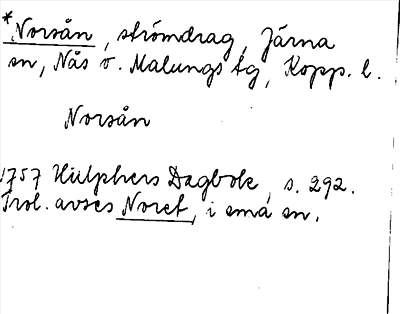 *Norsån, strömdrag, Järna
sn, Nås o. Malungs tg, Kopp. l.
Norsån
1757 Hülphers Dagbok, s. 292.
Trol. avses Noret, i små sn.